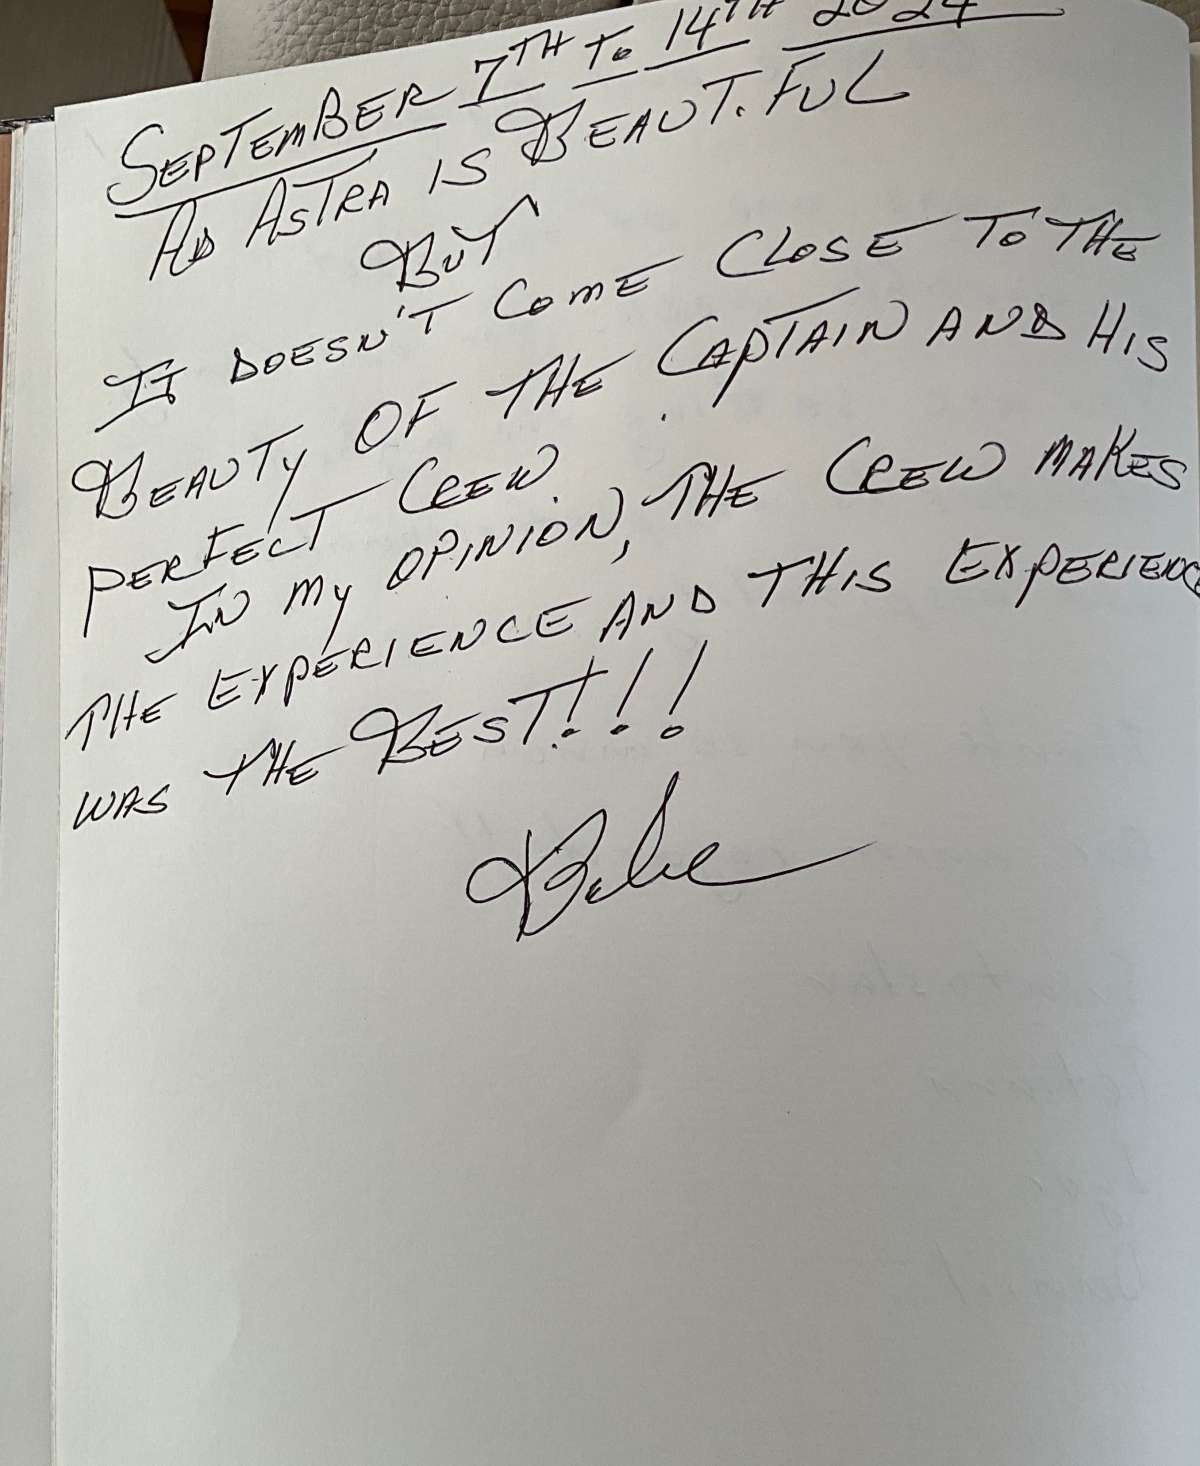 SEPTEMBER 7TH TO 14TH 2024
AD ASTRA IS BEAUTIFUL
BUT
IT DOESN'T COME CLOSE TO THE
BEAUTY OF THE CAPTAIN AND HIS
PERFECT CREW.
IN MY OPINION, THE CREW MAKES
THE EXPERIENCE AND THIS EXPERIENCE
WAS THE BEST!!!